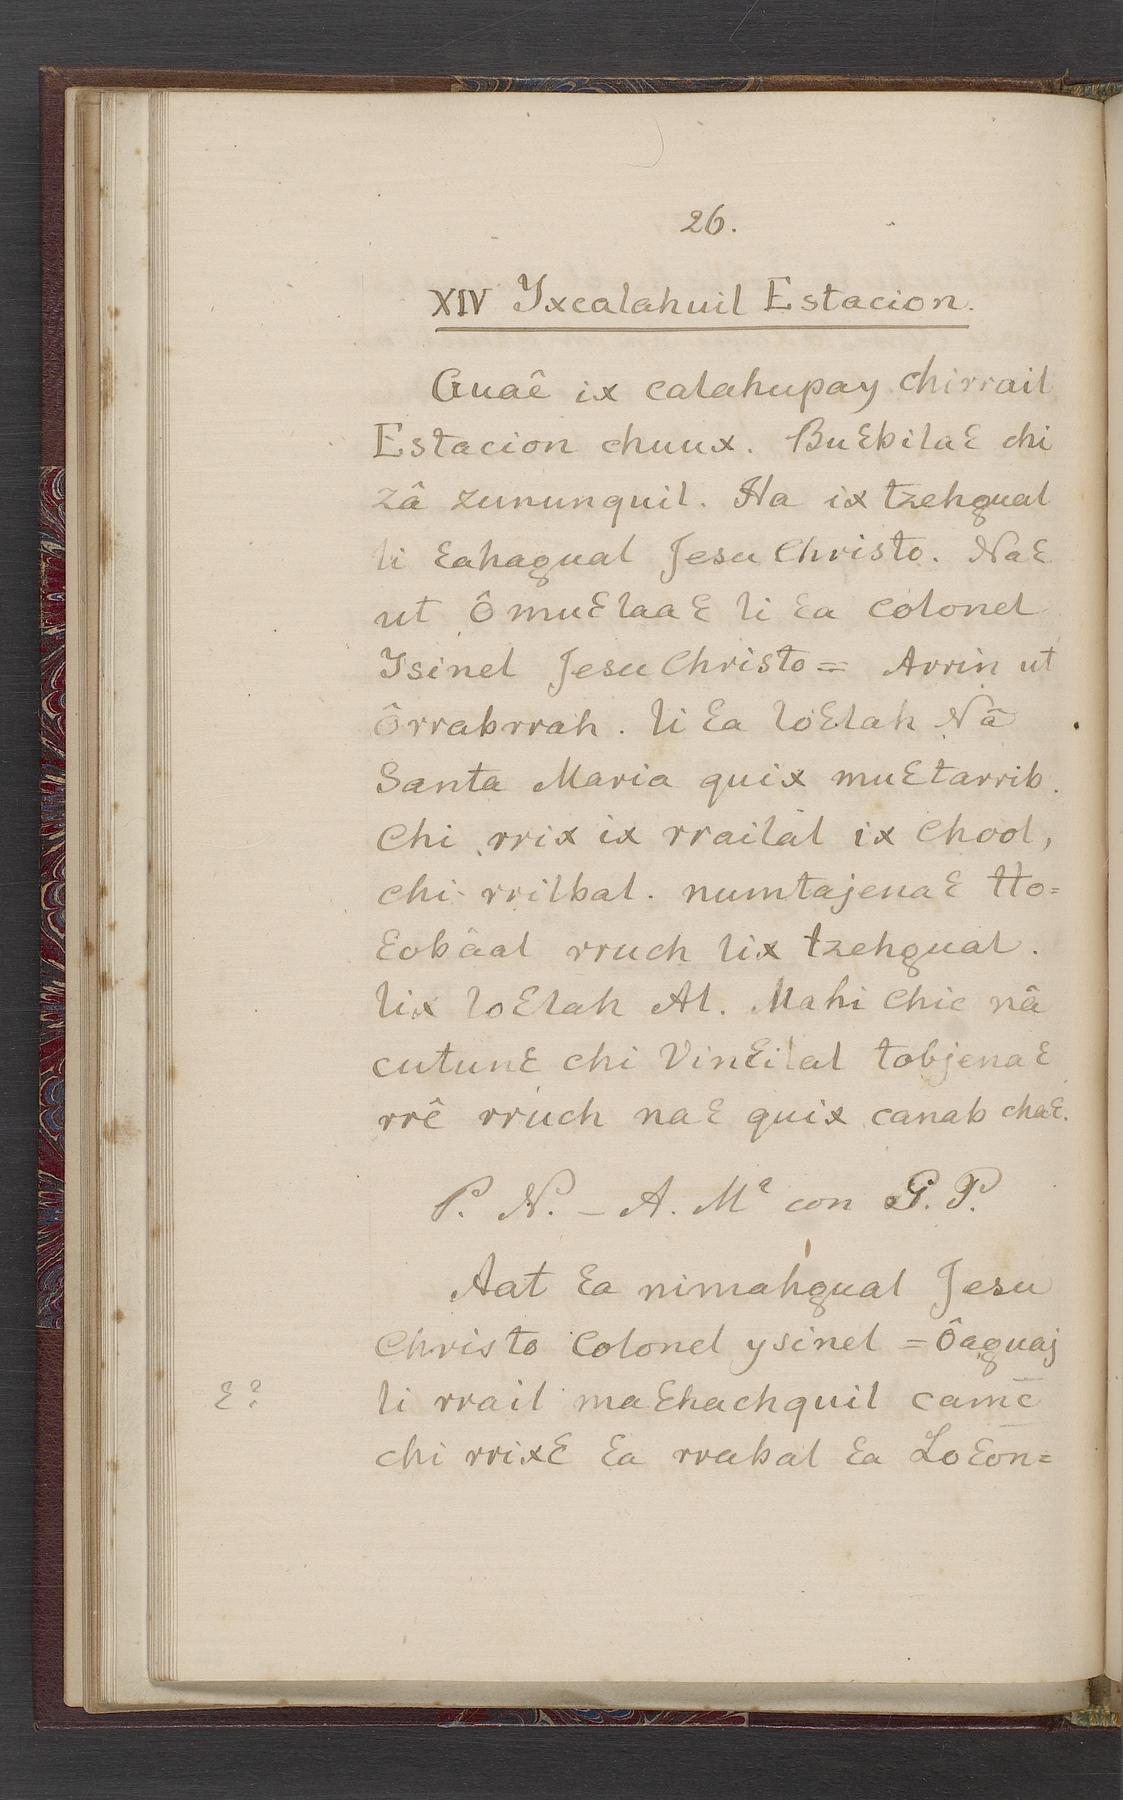 26.
XIV Yxcalahuil Estacion.
Guaê ix calahupay chirrail
Estacion chuux. BuƐbilaƐ chi
zâ zununquil. Ha ix tzehgual
li Ɛahagual Jesu Christo. NaƐ
ut ô muƐlaaƐ li Ɛa colonel
Ysinel Jesu Christo = Arrin ut
ôrrabrrah. li Ɛa loƐlah Nâ
Santa Maria quix muƐtarrib.
Chi rrix ix rrailal ix Chool,
chi rrilbal. numtajenaƐ tto=
Ɛobâal rruch lix tzehgual.
lix loƐlah Al. Mahi Chic nâ
cutunƐ chi VinƐilal tobjenaƐ
rrê rruch naƐ quix canab chaƐ.
P. N. – A. Mª con G. P.
Aat Ɛa nimahgual Jesu
Christo Colonel ysinel = ôaguaj
Ɛ? li rrail maƐhachquil camc̄
chi rrixƐ Ɛa rrabal Ɛa LoƐon=